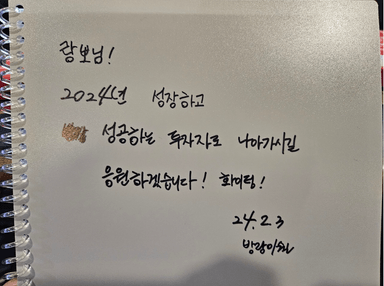 쾅보님!
2024년 성장하고
성공하는 투자자로 나아가시길
응원하겠습니다! 화이팅!
24. 2. 3